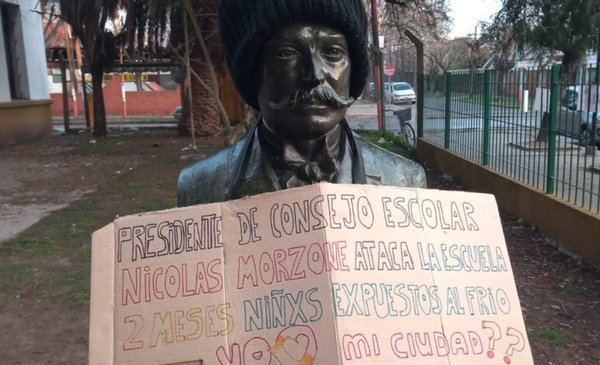 PRESIDENTE DE CONSEJO ESCOLAR
NICOLAS MORZONE ATACA LA ESCUELA
2 MESES NIÑXS EXPUESTOS AL FRIO
YO MI CIUDAD??